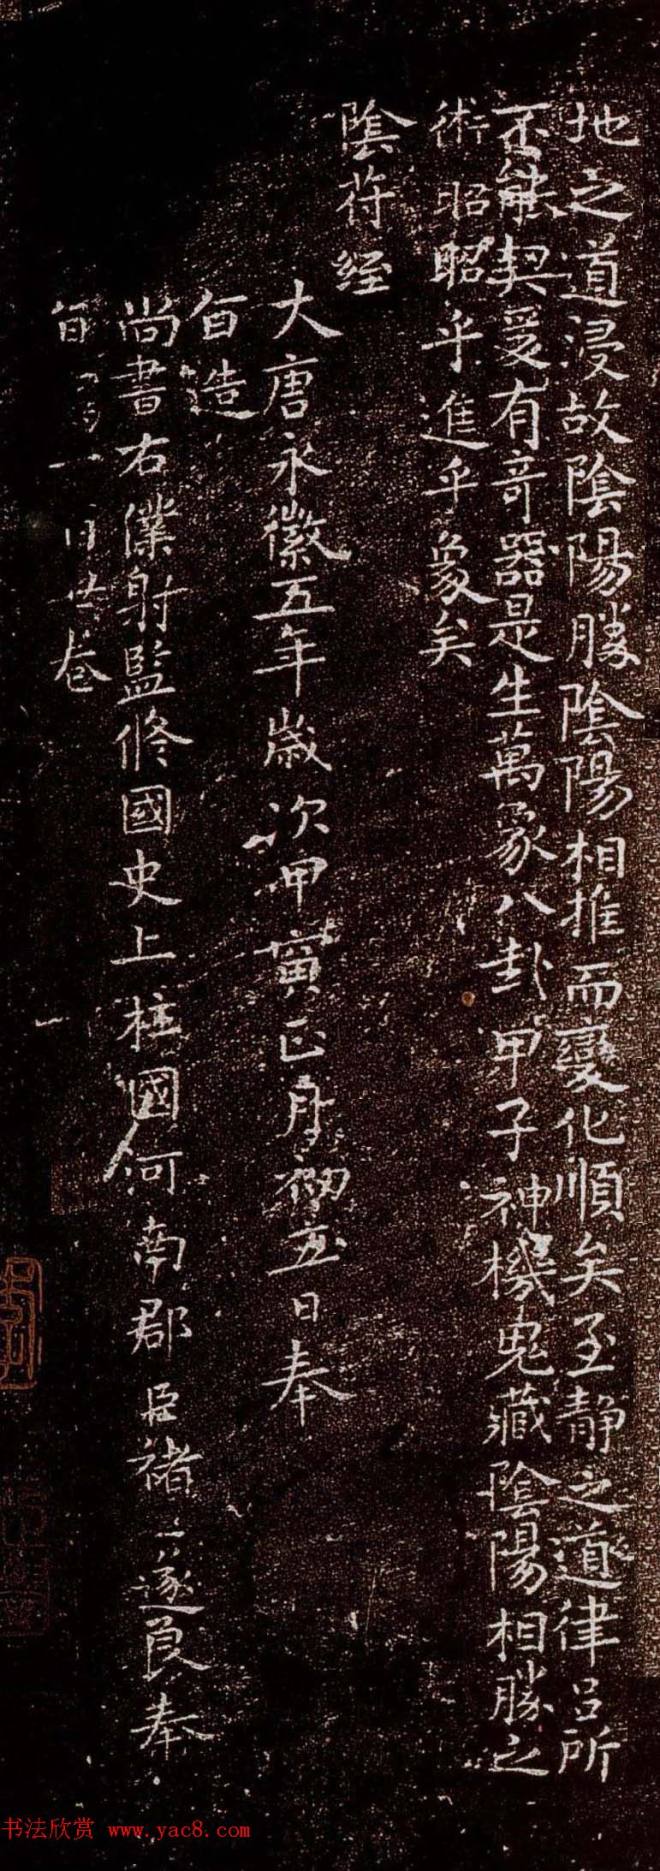 地之道浸故陰陽勝陰陽相推而變化順矣至靜之道律呂所
不能契爰有奇器是生萬象八卦甲子神機鬼藏陰陽相勝之
術昭昭乎進乎象矣
陰符經
大唐永徽五年歲次甲寅正月初五日奉
旨造
尚書右僕射監修國史上柱國河南郡臣褚遂良奉
旨 一百廿卷
书法欣赏 www.yac8.com